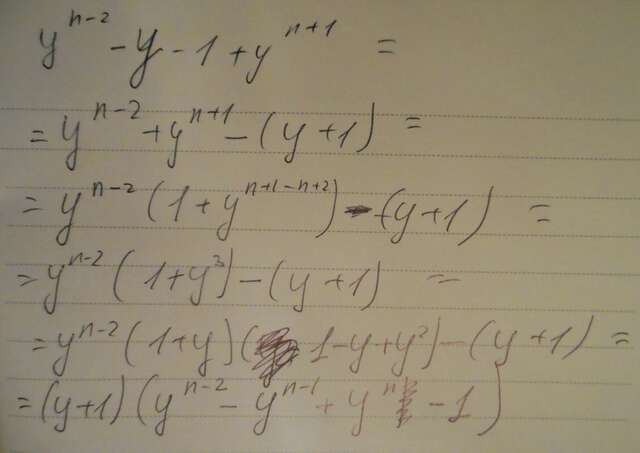 y^{n-2} - y - 1 + y^{n+1} =
= y^{n-2} + y^{n+1} - (y + 1) =
= y^{n-2} (1 + y^{n+1-n+2}) - (y + 1) =
= y^{n-2} (1 + y^3) - (y + 1) =
= y^{n-2} (1 + y) (1 - y + y^2) - (y + 1) =
= (y + 1) (y^{n-2} - y^{n-1} + y^n - 1)